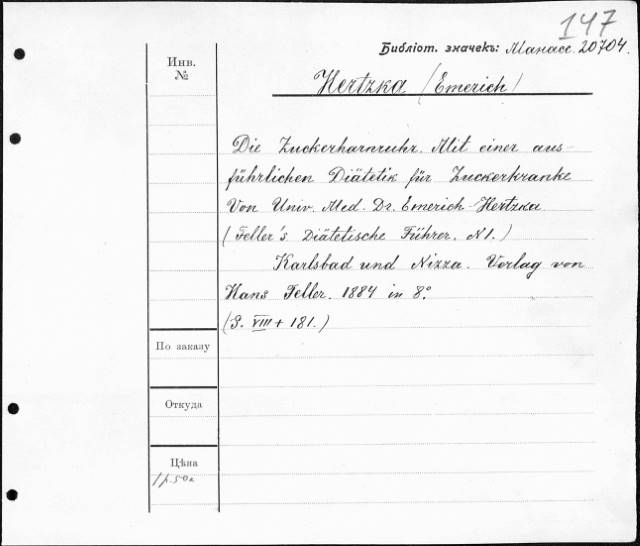 147
Библіот. значекъ: Манасс. 20704.
Инв.
№
Hertzka (Emerich)
Die Zuckerharnruhr. Mit einer aus-
führlichen Diätetik für Zuckerkranke
Von Univ. Med. Dr. Emerich Hertzka
(Feller's Diätetische Führer. N1.)
Karlsbad und Nizza. Verlag von
Hans Feller. 1884 in 8°.
(S. VIII + 181.)
По заказу
Откуда
Цѣна
1 р. 50 к